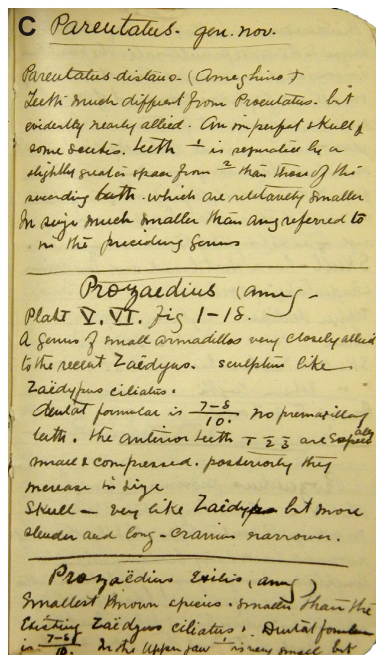 C Pareutatus. gen. nov.
Pareutatus distans - (Ameghino)
Teeth much different from Proeutatus. but
evidently nearly allied. An imperfect skull &
some scutes. teeth 1 is separated by a
slightly greater space from 2 than those of the
succeeding teeth. which are relatively smaller
In size much smaller than any referred to
in the preceding genus
Prozaedius (Ameg -
Plate V. VI. fig 1-18.
A genus of small armadillos very closely allied
to the recent Zaëdyus. sculpture like
Zaëdypus ciliatus.
dental formular is 7-8/10. no premaxillary
teeth. the anterior teeth 1 2 3 are especially
small & compressed. posteriorly they
increase in size
Skull - very like Zaëdypus but more
slender and long - cranium narrower.
Prozaëdius Exilis (Ameg)
Smallest known species. smaller than the
Existing Zaëdyus ciliatus. Dental formular
is 7-8/10. In the upper jaw 1 is very small but